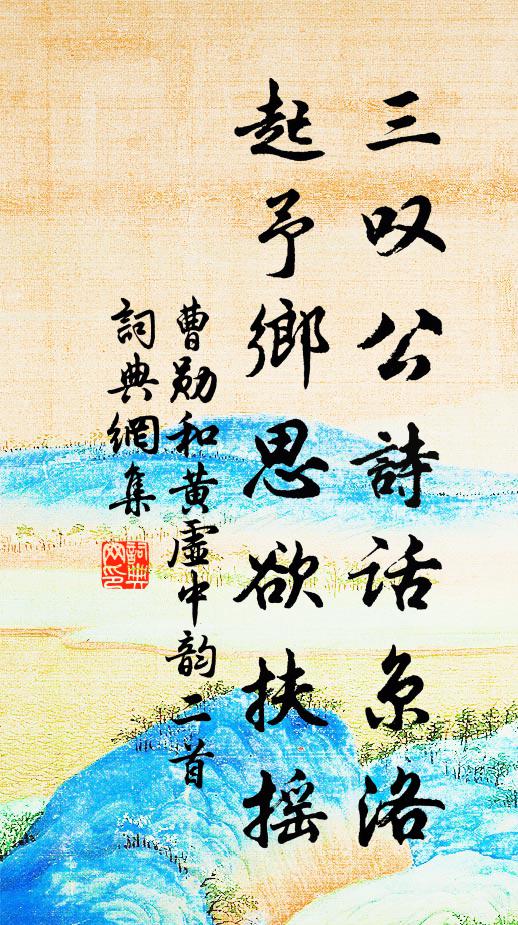 三叹公詩话京洛
起予鄉思欲扶摇
曹勋和黄虚中韵二首
詞典網集
詞典网印